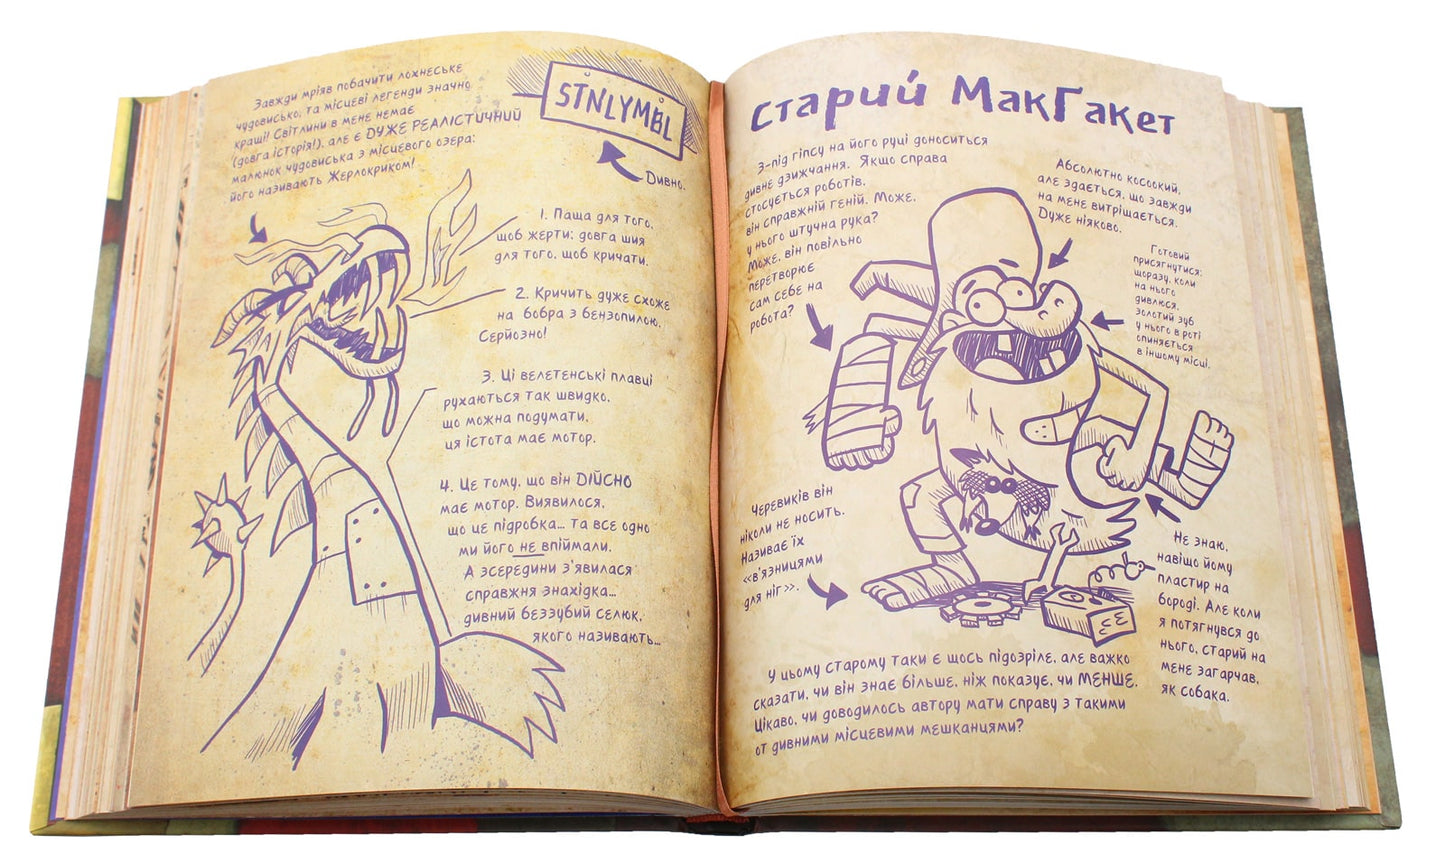 Завжди мріяв побачити лохнеське
чудовисько, та місцеві легенди значно
кращі! Світлини в мене немає
(довга історія!), але є ДУЖЕ РЕАЛІСТИЧНИЙ
малюнок чудовиська з місцевого озера:
його називають Жерлокриком!
STNLYMBL
Дивно.
1. Паща для того,
щоб жерти; довга шия
для того, щоб кричати.
2. Кричить дуже схоже
на бобра з бензопилою.
Серйозно!
3. Ці велетенські плавці
рухаються так швидко,
що можна подумати,
ця істота має мотор.
4. Це тому, що він ДІЙСНО
має мотор. Виявилося,
що це підробка... та все одно
ми його не впіймали.
А зсередини з'явилася
справжня знахідка...
дивний беззубий селюк,
якого називають...
Старий МакГакет
З-під гіпсу на його руці доноситься
дивне дзижчання. Якщо справа
стосується роботів,
він справжній геній. Може,
у нього штучна рука?
Може, він повільно
перетворює
сам себе на
робота?
Абсолютно косоокий,
але здається, що завжди
на мене витріщається.
Дуже ніяково.
Готовий
присягнутися:
щоразу, коли
на нього
дивлюся,
золотий зуб
у нього в роті
опиняється
в іншому місці.
Черевиків він
ніколи не носить.
Називає їх
«в'язницями
для ніг».
Не знаю,
навіщо йому
пластир на
бороді. Але коли
я потягнувся до
нього, старий на
мене загарчав,
як собака.
У цьому старому таки є щось підозріле, але важко
сказати, чи він знає більше, ніж показує, чи МЕНШЕ.
Цікаво, чи доводилось автору мати справу з такими
от дивними місцевими мешканцями?